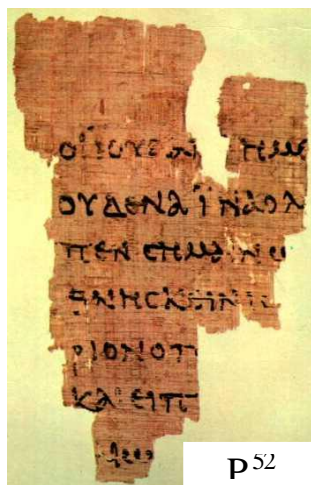 ΟΙΪΟΥΔΑΙ ΗΜΕ
ΟΥΔΕΝΑΪΝΑΟΛ
ΠΕΝϹΗΜΑΙΝΩ
ΘΝΗϹΚΕΙΝΙ
ΡΙΟΝΟΠ
ΚΑΙΕΙΠ
P⁵²